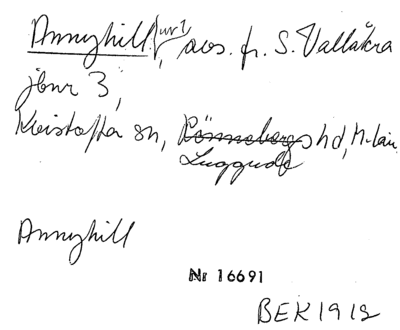 Annyhill, [nr 1], avs. fr. S. Vallåkra
jbnr 3,
Kvistofta sn, Rönnebergs hd, M. län
Luggude
Annyhill
Nr 16691
BEK 1912